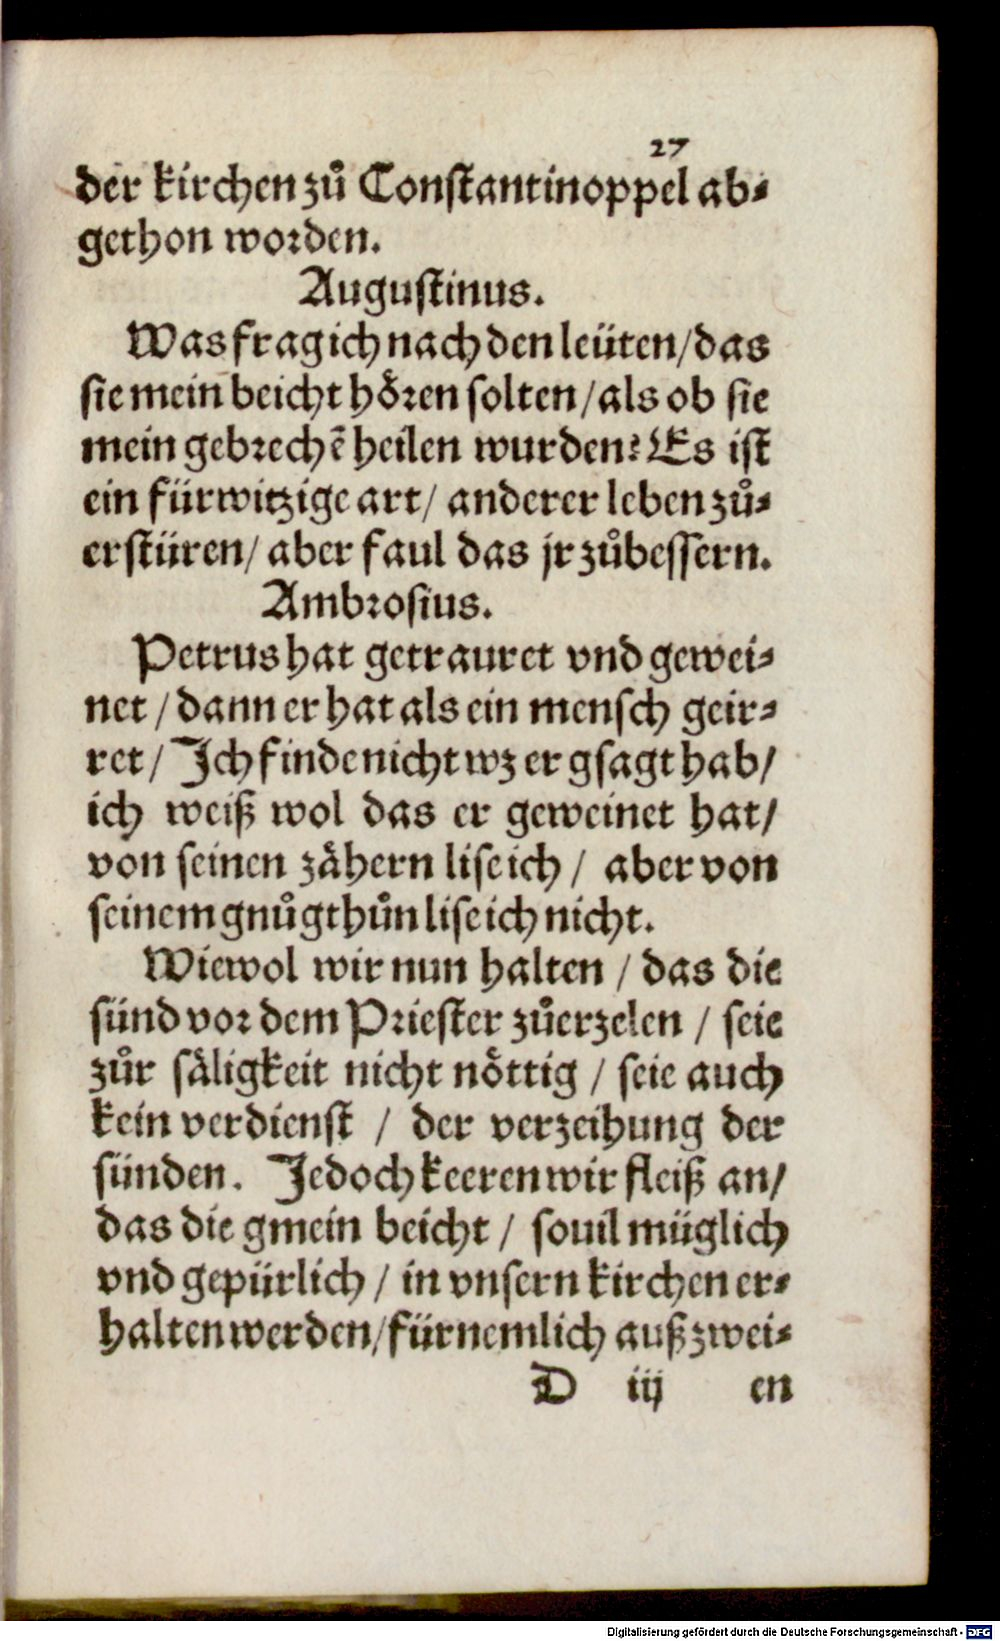 27
der kirchen zů Constantinoppel ab⸗
gethon worden.
Augustinus.
Was frag ich nach den leüten/das
sie mein beicht hoͤren solten/als ob sie
mein gebrechē heilen wurden? Es ist
ein fürwitzige art/ anderer leben zů⸗
erstüren/ aber faul das jr zůbessern.
Ambrosius.
Petrus hat getrauret vnd gewei⸗
net / dann er hat als ein mensch geir⸗
ret/ Ich finde nicht wz er gsagt hab/
ich weiß wol das er geweinet hat/
von seinen zaͤhern lise ich / aber von
seinem gnůgthůn lise ich nicht.
Wiewol wir nun halten / das die
sünd vor dem Priester zůerzelen / seie
zůr saͤligkeit nicht noͤttig / seie auch
kein verdienst / der verzeihung der
sünden. Jedoch keeren wir fleiß an/
das die gmein beicht / souil müglich
vnd gepürlich / in vnsern kirchen er⸗
halten werden/fürnemlich auß zwei⸗
D iij en
Digitalisierung gefördert durch die Deutsche Forschungsgemeinschaft - DFG